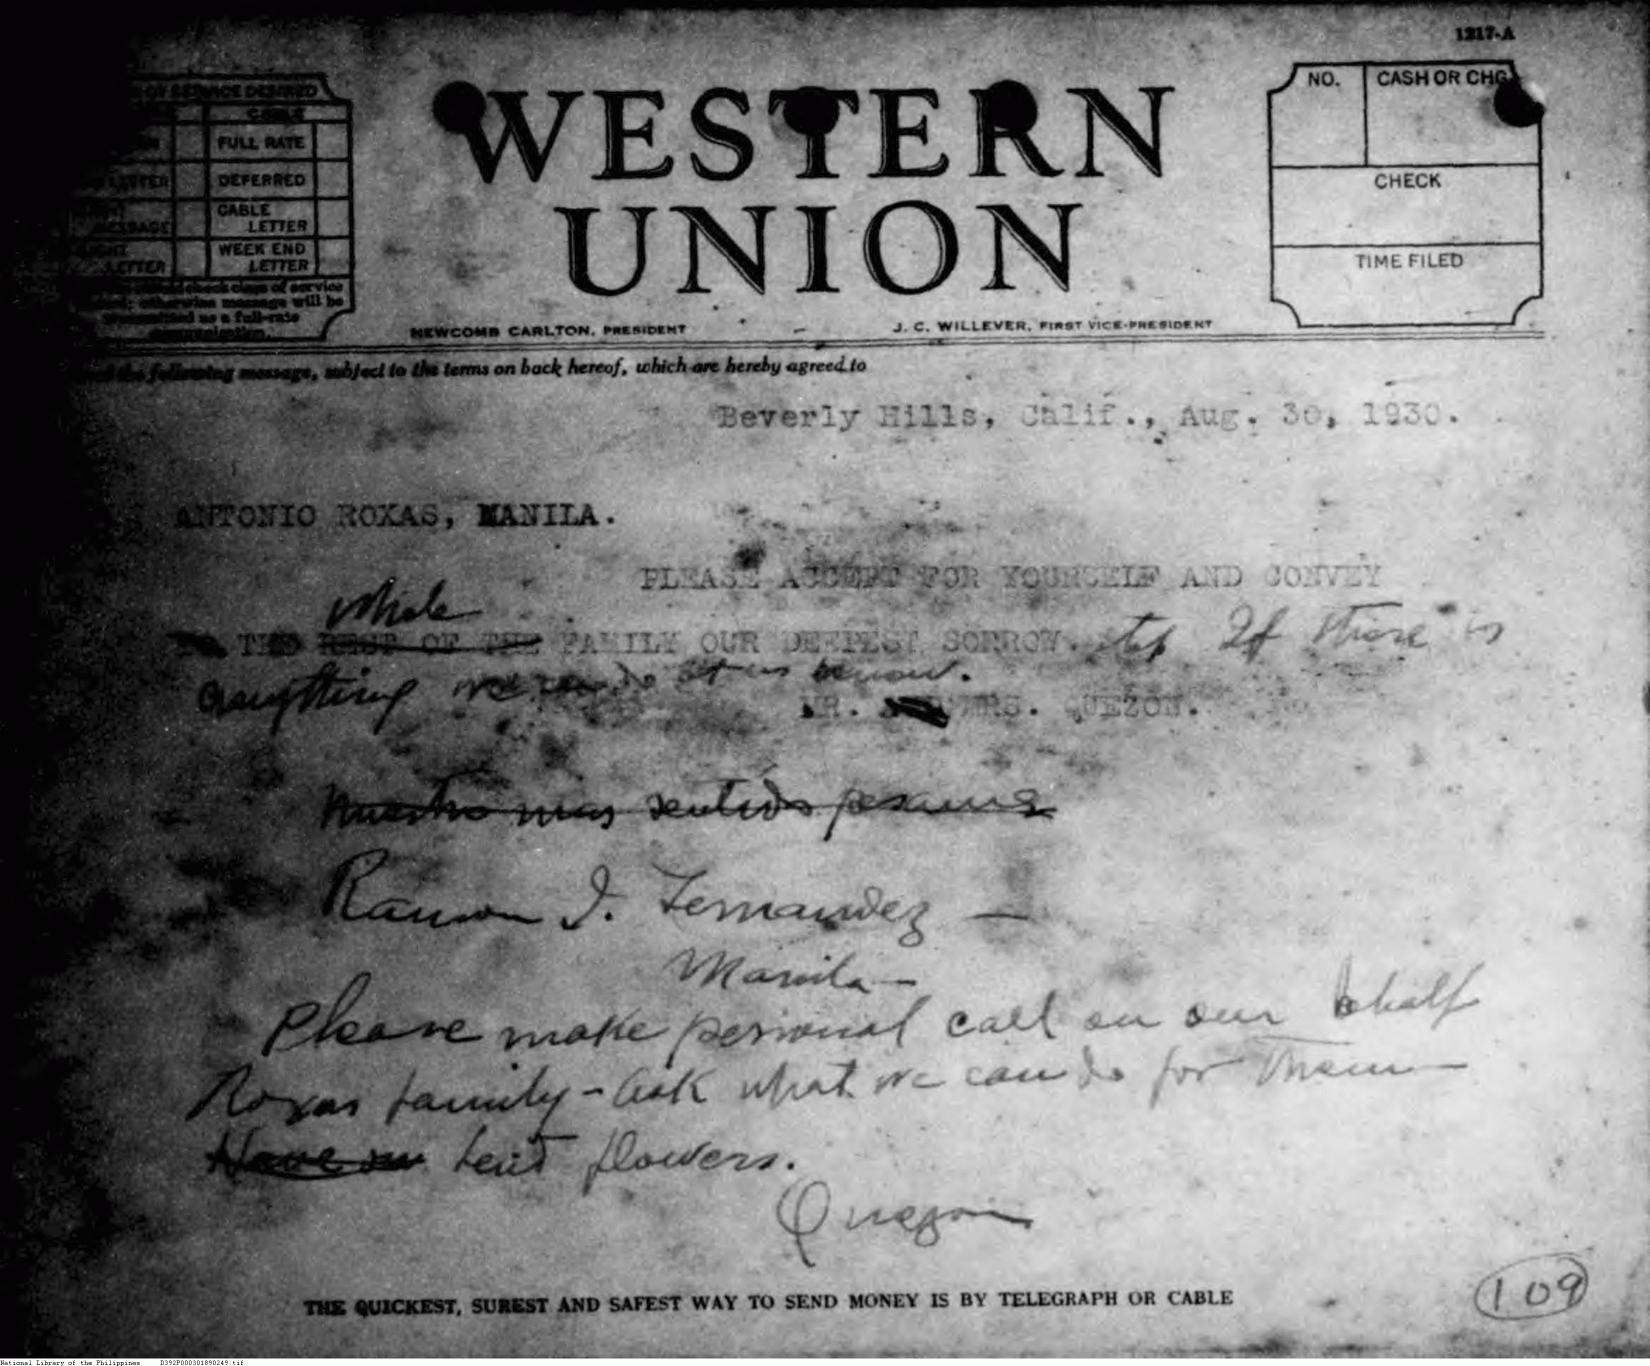 1217-A
OF SERVICE DESIRED
CABLE
FULL RATE
LETTER DEFERRED
CABLE
LETTER
WEEK END
LETTER LETTER
check class of service
otherwise message will be
transmitted as a full-rate
communication.
WESTERN
UNION
NEWCOMB CARLTON, PRESIDENT J. C. WILLEVER, FIRST VICE-PRESIDENT
NO. CASH OR CHG
CHECK
TIME FILED
the following message, subject to the terms on back hereof, which are hereby agreed to
Beverly Hills, Calif., Aug. 30, 1930.
ANTONIO ROXAS, MANILA.
PLEASE ACCEPT FOR YOURSELF AND CONVEY
whole
THE REST OF THE FAMILY OUR DEEPEST SORROW. stp If there is
anything we can do let us know.
MR. MRS. QUEZON.
Nuestro mas sentido pesame
Ramon J. Fernandez —
Manila —
Please make personal call on our behalf
Roxas family - ask what we can do for them —
Have sent flowers.
Quezon
THE QUICKEST, SUREST AND SAFEST WAY TO SEND MONEY IS BY TELEGRAPH OR CABLE
109
National Library of the Philippines D392P000301890249.tif